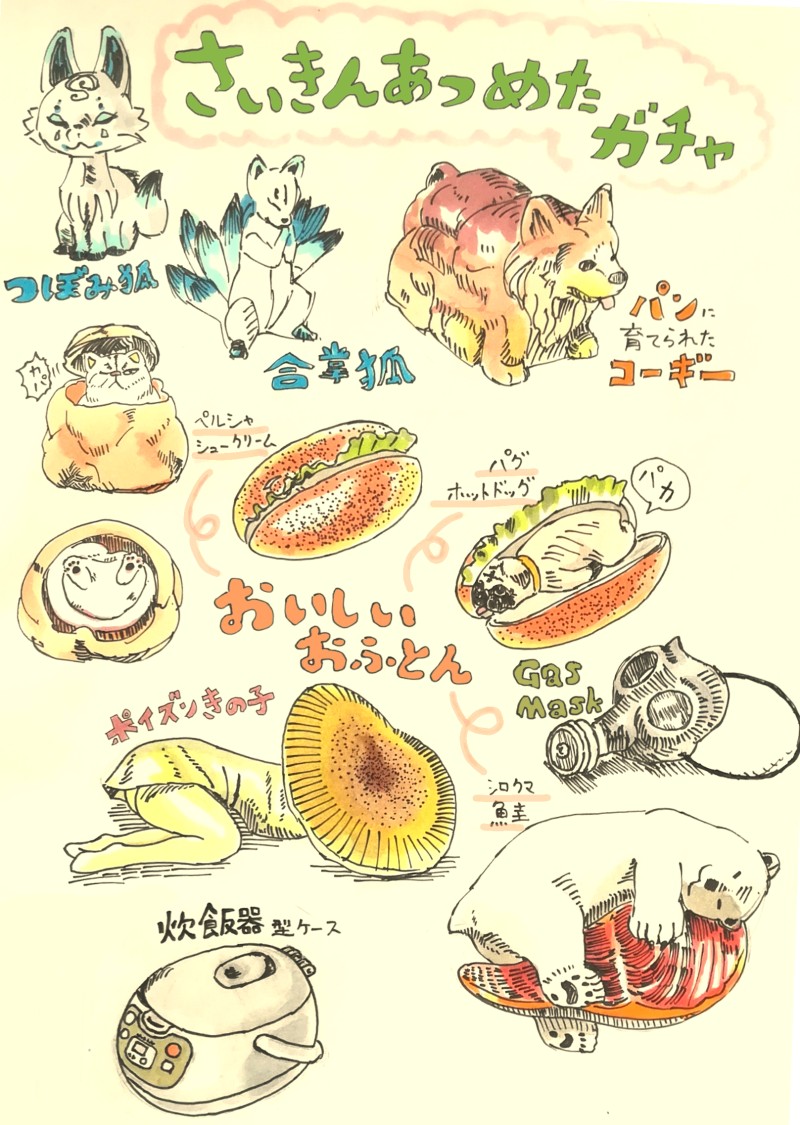 さいきんあつめた
ガチャ
つぼみ狐
合掌狐
パンに
育てられた
コーギー
カパ
ペルシャ
シュークリーム
パグ
ホットドッグ
パカ
おいしい
おふとん
Gas
Mask
ポイズンきの子
シロクマ
鮭
炊飯器型ケース